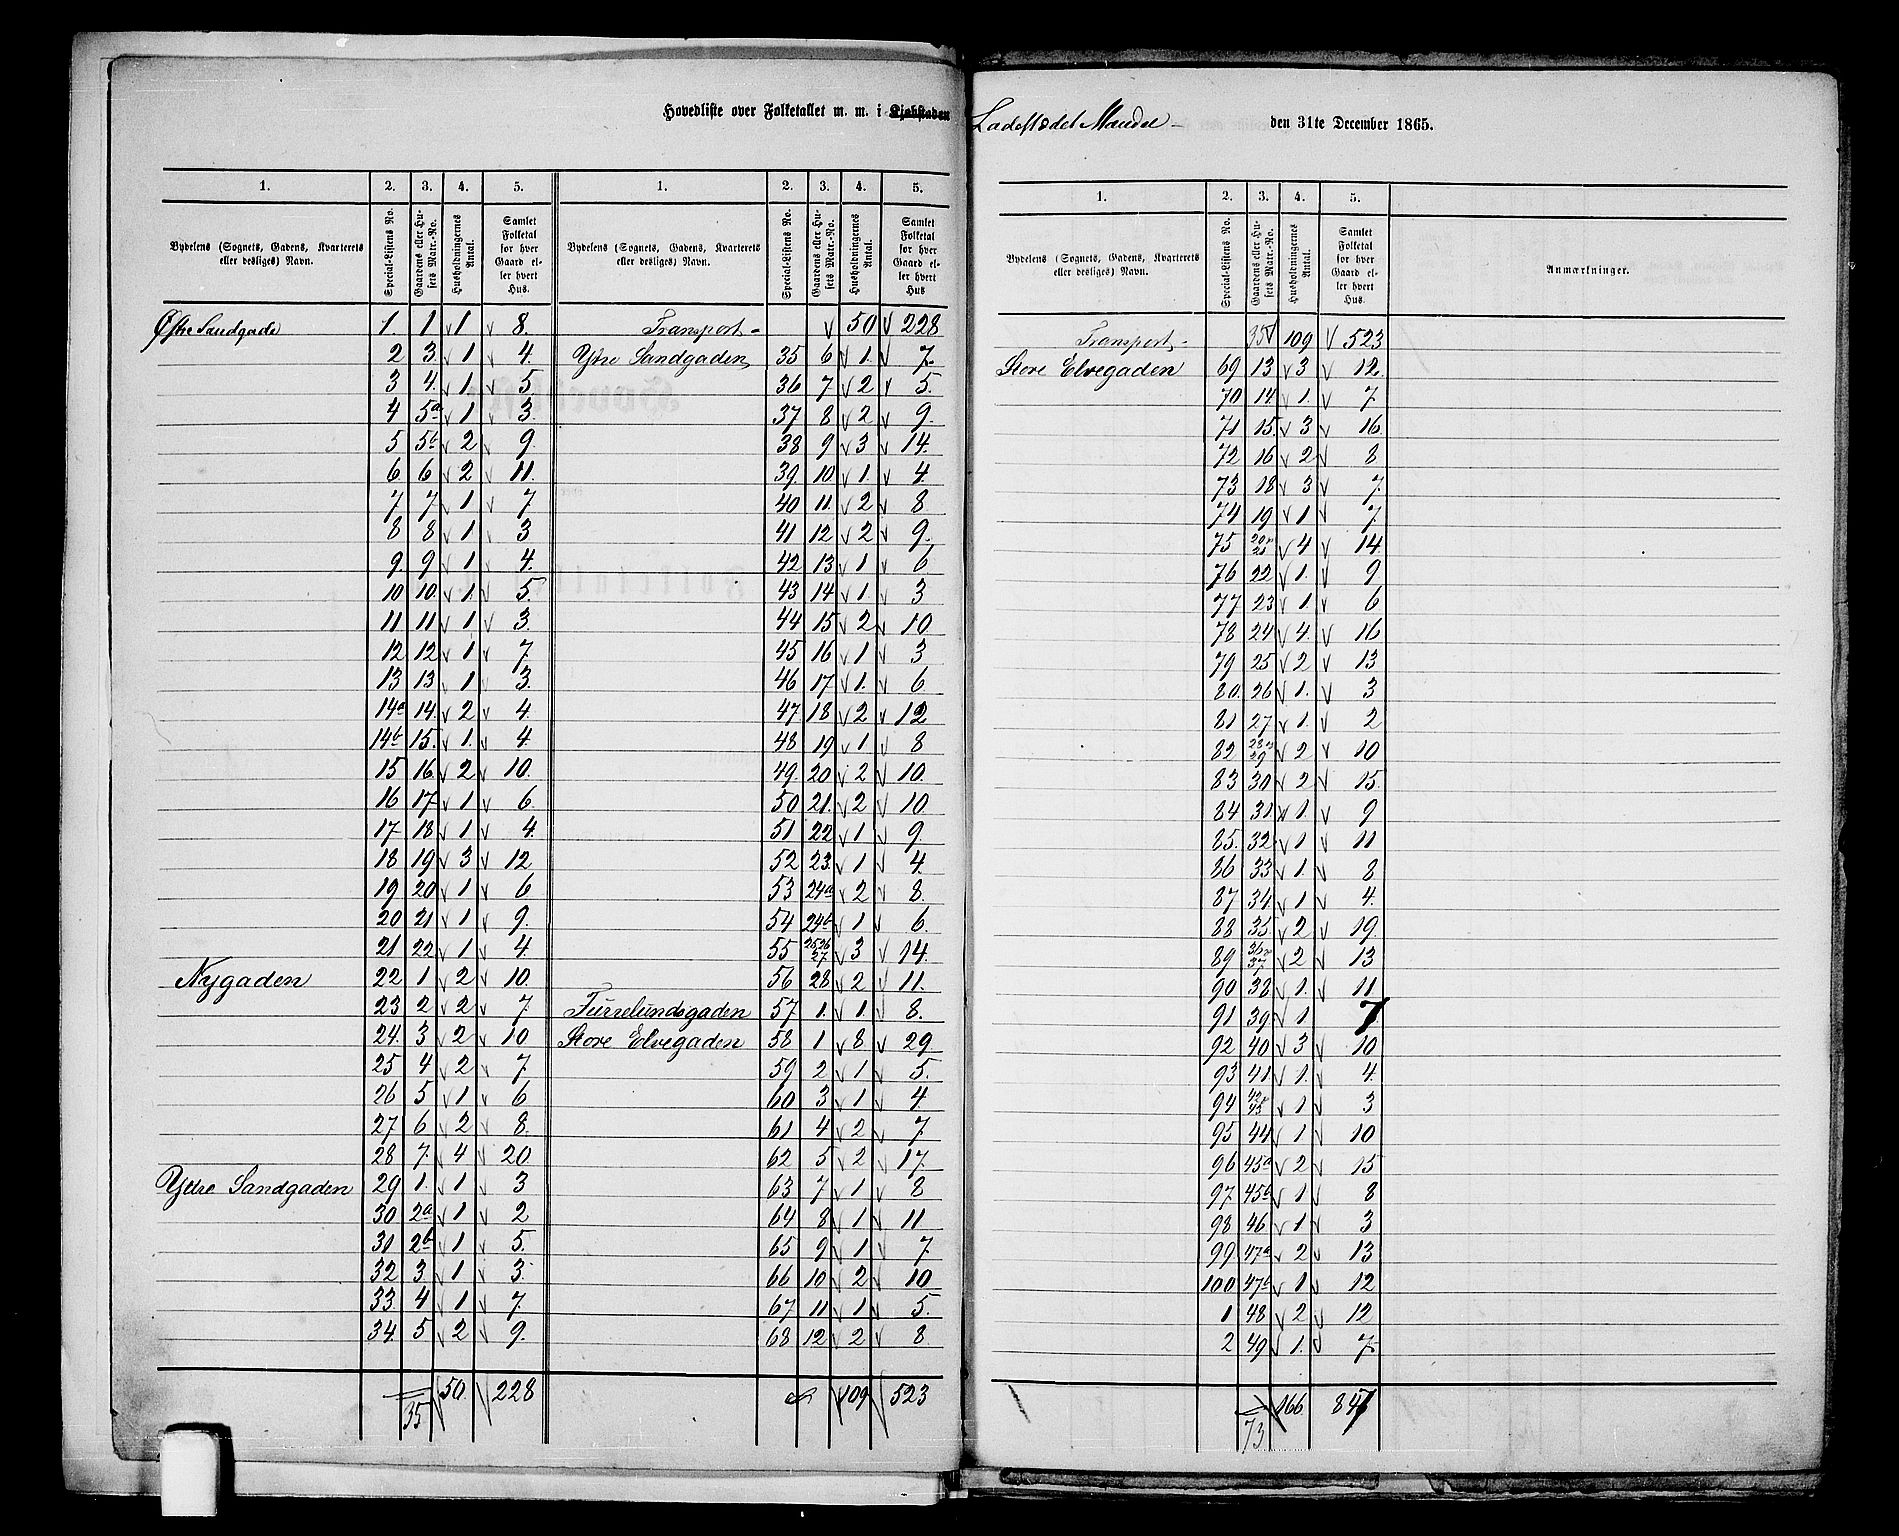 Hovedliste over Folketallet m. m. i Kjøbstaden Ladestedet Mandal - den 31te December 1865.
1. 2. 3. 4. 5. 1. 2. 3. 4. 5.
Bydelens (Sognets, Gadens, Kvarterets eller desliges) Navn. Special-Listens No. Gaardens eller Husets Matr.-No. Husholdningernes Antal. Samlet Folketal for hver Gaard eller hvert Hus. Bydelens (Sognets, Gadens, Kvarterets eller desliges) Navn. Special-Listens No. Gaardens eller Husets Matr.-No. Husholdningernes Antal. Samlet Folketal for hver Gaard eller hvert Hus
Østre Sandgade 1. 1 √ 1 √ 8. Transport - √ 50 √ 228
2 3. √ 1 √ 4. Ytre Sandgaden 35 6 √ 1. √ 7.
3 4. √ 1 √ 5 36 7 √ 2 √ 5.
4 5a √ 1 √ 3. 37 8 √ 2 √ 9.
5 5b √ 2 √ 9. 38 9 √ 3 √ 14.
6 6 √ 2 √ 11. 39 10 √ 1. √ 4.
7 7 √ 1 √ 7 40 11. √ 2 √ 8
8 8 √ 1 √ 3 41 12 √ 2 √ 9.
9. 9 √ 1 √ 4. 42 13 √ 1 √ 6
10 10. √ 1. √ 5. 43 14 √ 1. √ 3
11 11 √ 1 √ 3. 44 15 √ 2 √ 10
12 12 √ 1 √ 7. 45 16 √ 1 √ 3
13 13 √ 1 √ 3. 46 17 √ 1. √ 6
14a 14. √ 2 √ 4. 47 18 √ 2 √ 12
14b 15. √ 1. √ 4. 48 19 √ 1 √ 8
15 16 √ 2 √ 10. 49 20 √ 2 √ 10.
16 17 √ 1 √ 6. 50 21. √ 2 √ 10
17 18 √ 1 √ 4. 51 22 √ 1 √ 9.
18 19 √ 3 √ 12 52 23. √ 1 √ 4.
19 20 √ 1 √ 6 53 24a √ 2 √ 8.
20 21 √ 1 √ 9. 54 24b √ 1 √ 6.
21 22 √ 1 √ 4. 55 25 26 27 √ 3 √ 14.
Nygaden 22 1 √ 2 √ 10. 56 28 √ 2 √ 11.
23 2 √ 2 √ 7. Furrelundsgaden 57 1. √ 1. √ 8.
24. 3 √ 2 √ 10 Store Elvegaden 58 1 √ 8 √ 29.
25 4 √ 2 √ 7 59 2 √ 1 √ 5.
26 5 √ 1 √ 6 60 3 √ 1 √ 4
27 6 √ 2 √ 8. 61 4 √ 2 √ 7
28 7. √ 4 √ 20 62 5 √ 2 √ 17.
Ytre Sandgaden 29 1. √ 1 √ 3 63 7 √ 1 √ 8
30 2a √ 1 √ 2 64 8 √ 1 √ 11
31 2b √ 1 √ 5. 65 9 √ 1 √ 7
32 3 √ 1 √ 3. 66 10 √ 2 √ 10
33. 4 √ 1 √ 7. 67 11 √ 1 √ 5.
34. 5 √ 2 √ 9. 68 12 √ 2 √ 8
35 √ 50. √ 228 √ 109 √ 523
1. 2. 3. 4. 5.
Bydelens (Sognets, Gadens, Kvarterets eller desliges) Navn. Special-Listens No. Gaardens eller Husets Matr.-No. Husholdningernes Antal. Samlet Folketal for hver Gaard eller hvert Hus. Anmærkninger.
Transport - 35 √ 109 √ 523
Store Elvegaden 69 13 √ 3 √ 12.
70 14. √ 1. √ 7
71 15. √ 3 √ 16
72 16 √ 2 √ 8
73 18 √ 3 √ 7.
74 19 √ 1 √ 7.
75 20 21 √ 4 √ 14
76 22 √ 1. √ 9
77 23 √ 1 √ 6
78 24 √ 4. √ 16
79 25 √ 2 √ 13
80. 26 √ 1. √ 3
81 27 √ 1. √ 2
82 28 29 √ 2 √ 10
83 30 √ 2 √ 15.
84 31. √ 1. √ 9
85. 32 √ 1 √ 11
86 33 √ 1. √ 8
87 34. √ 1 √ 4.
88 35. √ 2 √ 19.
89 36 37 √ 2 √ 13
90 38 √ 1. √ 11
91 39 √ 1 7
92 40 √ 3 √ 10
93 41 √ 1. √ 4.
94 42 43 √ 1 √ 3
95 44 √ 1 √ 10
96 45a √ 2 √ 15
97 45b √ 1 √ 8
98 46 √ 1 √ 3
99 47a √ 2 √ 13
100 47b √ 1 √ 12
1 48 √ 2 √ 12
2 49 √ 1. √ 7.
73 166 847